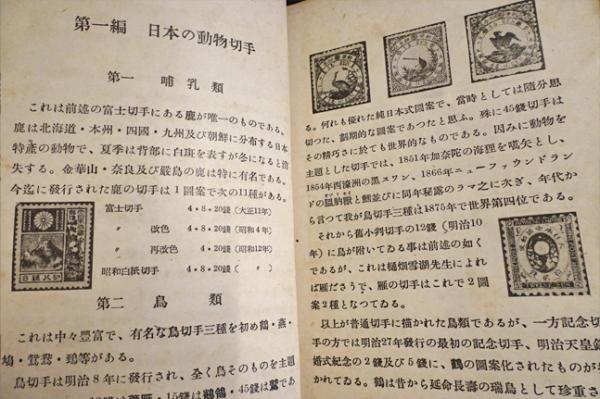 第一編　日本の動物切手
第一　哺乳類
これは前述の富士切手にある鹿が唯一のものである。
鹿は北海道・本州・四國・九州及び朝鮮に分布する日本
特產の動物で、夏季は背部に白斑を表すが冬になると消
失する。金華山・奈良及び嚴島の鹿は特に有名である。
今迄に發行された鹿の切手は1圖案で次の11種がある。
富士切手　4・8・20錢（大正11年）
〃　改色　4・8・20錢（昭和4年）
〃　再改色　4・8・20錢（昭和12年）
昭和白紙切手　4・8・20錢（　〃　）
第二　鳥類
これは中々豐富で、有名な鳥切手三種を初め鶴・燕・
鳩・鴛鴦・鵄等がある。
鳥切手は明治8年に發行され、全く鳥そのものを主題
・15錢は鶺鴒・45錢は鷲であ
る。何れも優れた純日本式圖案で、當時としては隨分思
切つた、劃期的な圖案であつたと思ふ。殊に45錢切手は
その精巧さに於ても世界的なものである。因みに動物を
主題とした切手では、1851年加奈陀の海狸を嚆矢とし、
1854年西濠洲の黑スワン、1866年ニューファウンドラン
ドの膃肭獸と鱈並びに同年秘露のラマ之に次ぎ、年代か
ら言つて我が鳥切手三種は1875年で世界第四位である。
それから舊小判切手の12錢（明治10
年）に鳥が附いてゐる事は前述の如く
であるが、これは樋畑雪湖先生によれ
ば雁ださうで、雁の切手はこれで2圖
案2種となつてゐる。
以上が普通切手に描かれた鳥類であるが、一方記念切
手の方では明治27年發行の最初の記念切手、明治天皇銀
婚式紀念の2錢及び5錢に、鶴の圖案化されたものが
かれてゐる。鶴は昔から延命長壽の瑞鳥として珍重さ